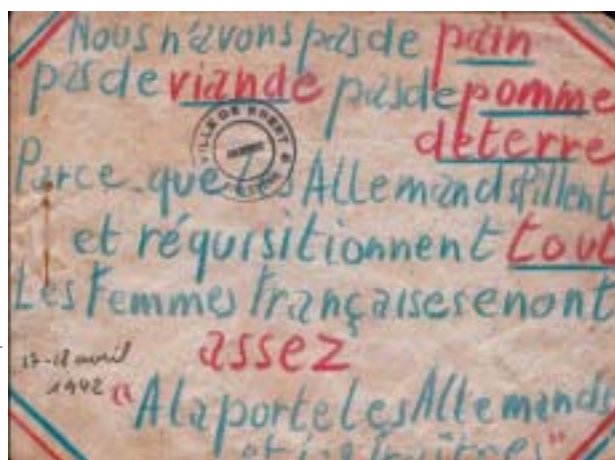 Nous n'avons pas de pain
pas de viande pas de pomme
de terre
Parce que les Allemands Pillent
et réquisitionnent tout
Les Femmes Françaises en ont
assez
17-18 avril
1942
"A la porte les Allemands
et les traîtres"
VILLE DE BREST